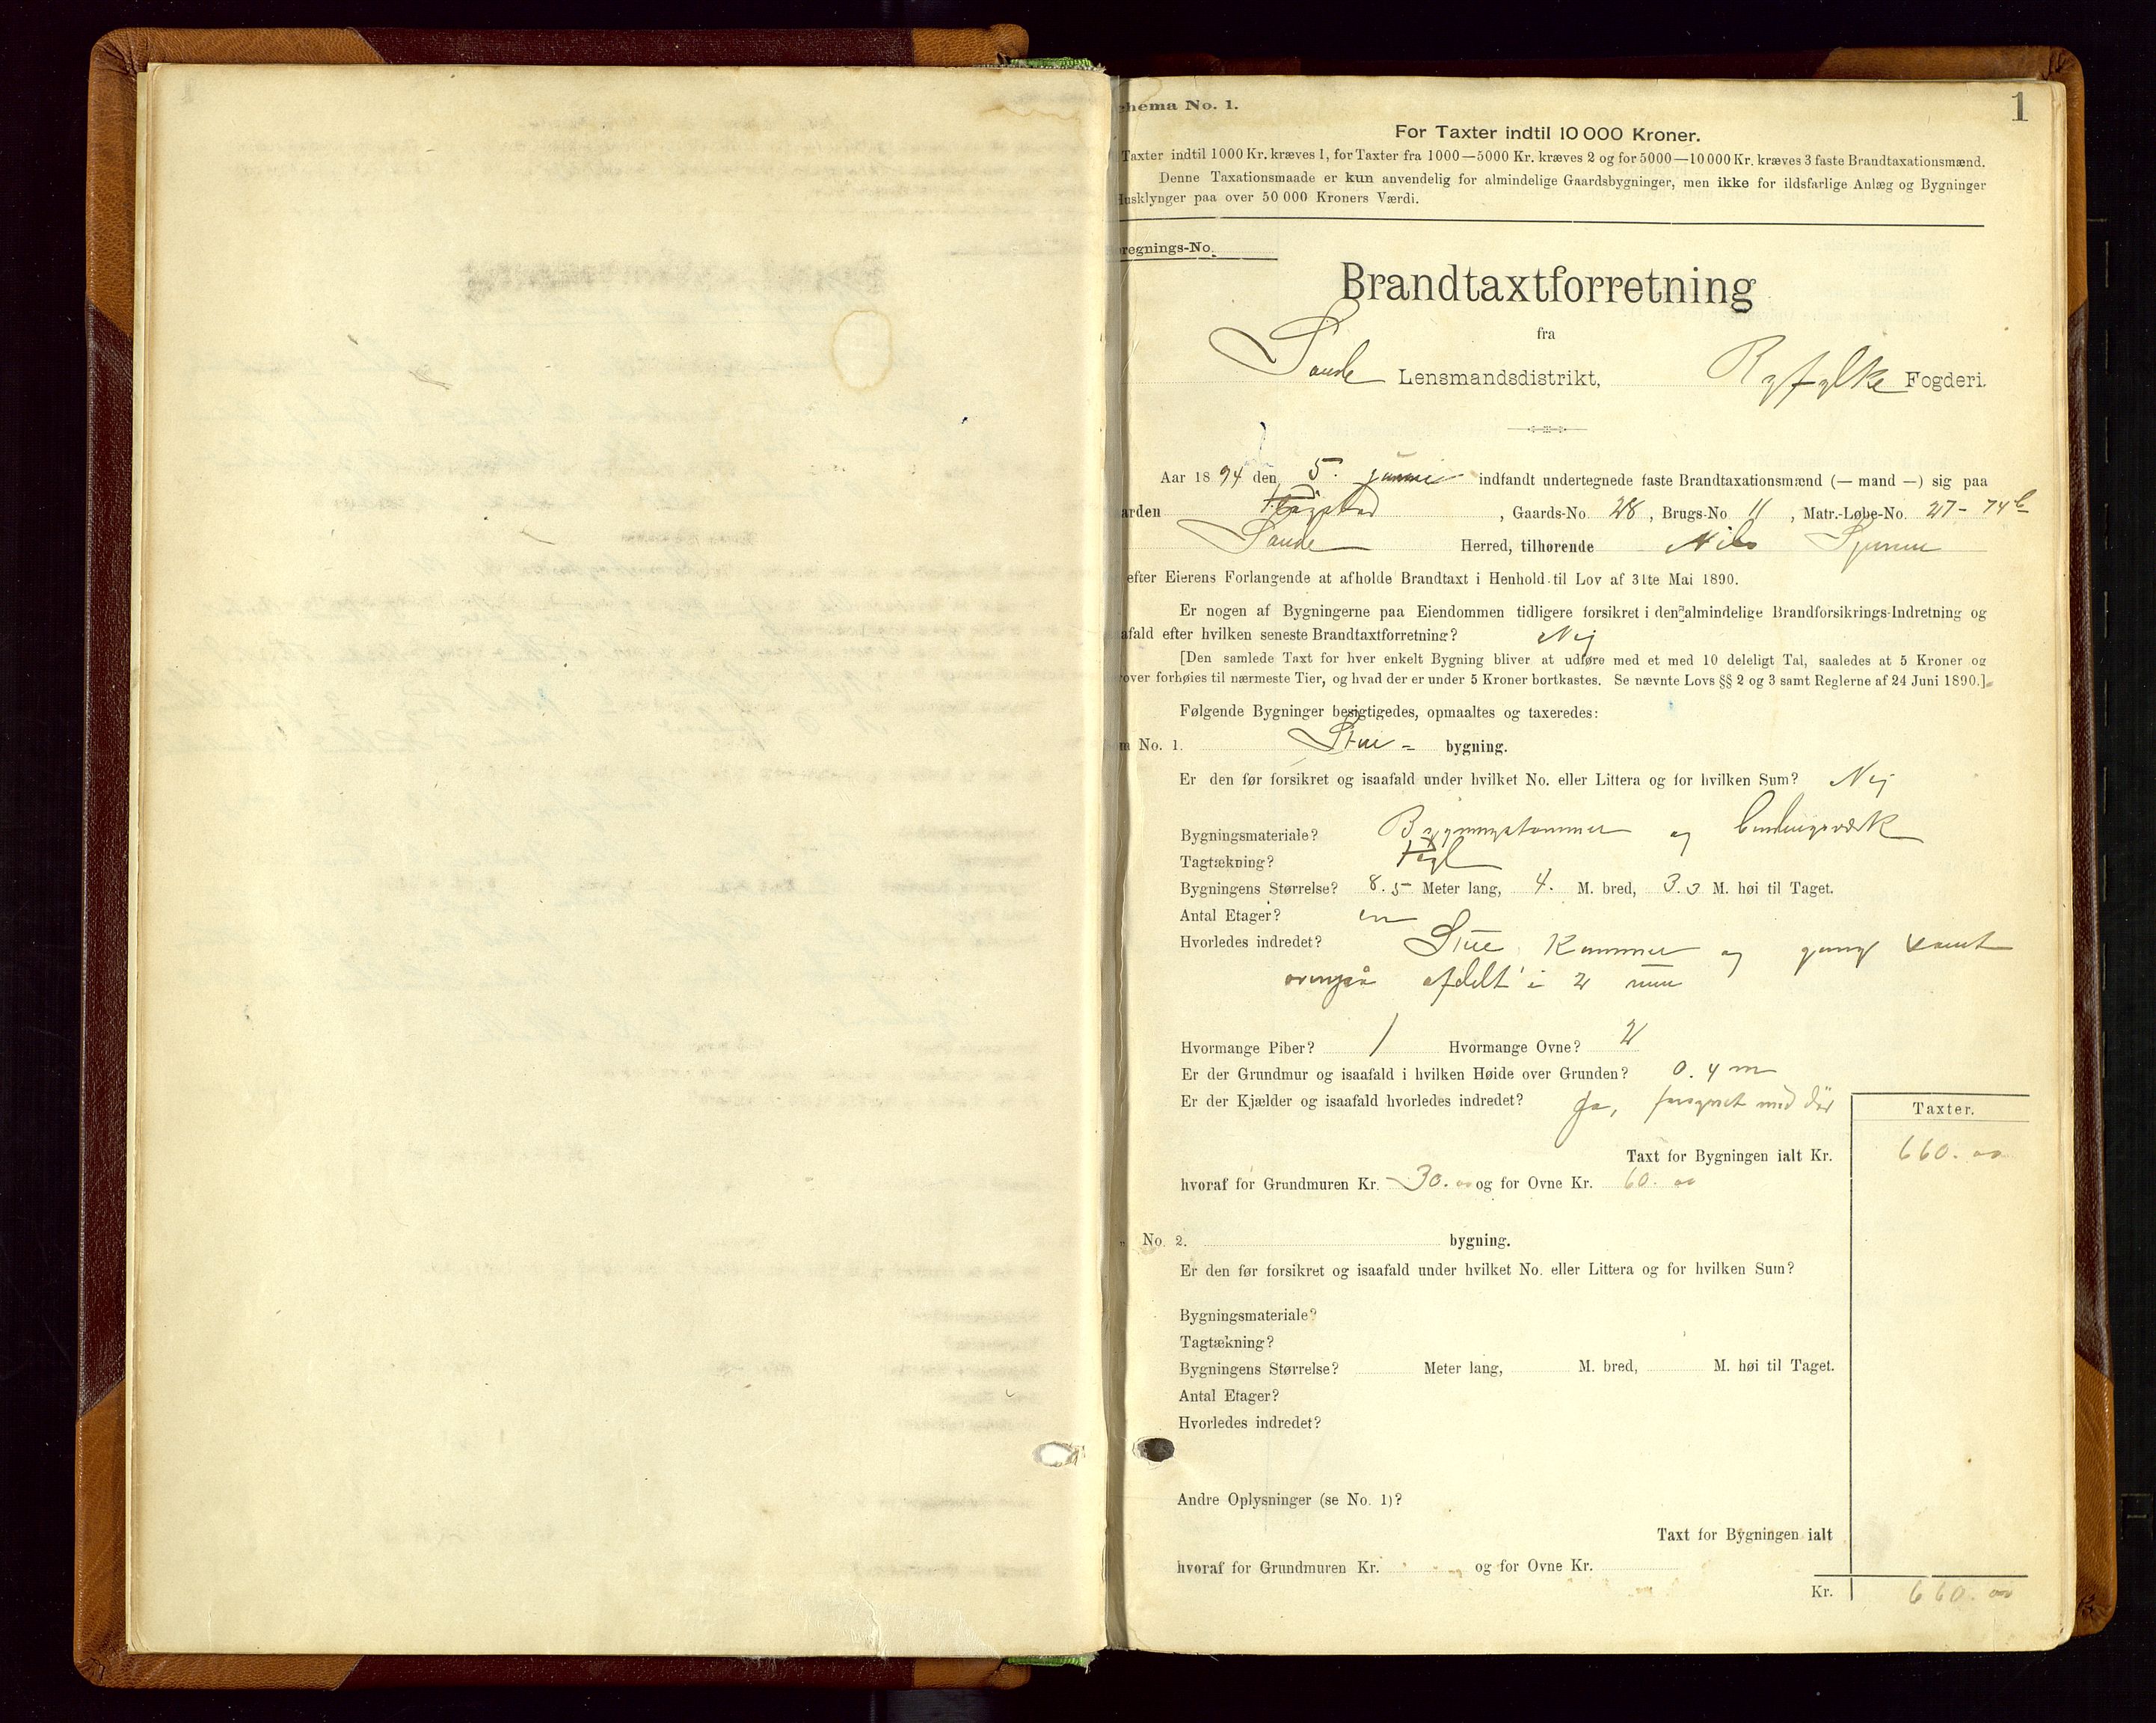 1
hema No. 1.
For Taxter indtil 10 000 Kroner.
Taxter indtil 1000 Kr. kræves 1, for Taxter fra 1000—5000 Kr. kræves 2 og for 5000—10 000 Kr. kræves 3 faste Brandtaxationsmænd.
Denne Taxationsmaade er kun anvendelig for almindelige Gaardsbygninger, men ikke for ildsfarlige Anlæg og Bygninger
Husklynger paa over 50 000 Kroners Værdi.
regnings-No.
Brandtaxtforretning
fra
Saude Lensmandsdistrikt, Ryfylke Fogderi.
Aar 1894 den 5. Junni indfandt undertegnede faste Brandtaxationsmænd (— mand —) sig paa
arden , Gaards-No. 28, Brugs-No 11, Matr.-Løbe-No. 27-74b
Saude Herred, tilhørende Nils
efter Eierens Forlangende at afholde Brandtaxt i Henhold til Lov af 31te Mai 1890.
Er nogen af Bygningerne paa Eiendommen tidligere forsikret i den almindelige Brandforsikrings-Indretning og
afald efter hvilken seneste Brandtaxtforretning? Nej
[Den samlede Taxt for hver enkelt Bygning bliver at udføre med et med 10 deleligt Tal, saaledes at 5 Kroner og
over forhøies til nærmeste Tier, og hvad der er under 5 Kroner bortkastes. Se nævnte Lovs §§ 2 og 3 samt Reglerne af 24 Juni 1890.]
Følgende Bygninger besigtigedes, opmaaltes og taxeredes:
m No. 1. Stue- bygning.
Er den før forsikret og isaafald under hvilket No. eller Littera og for hvilken Sum? Nej
Bygningsmateriale? Bygningstømmer og bindingsværk
Tagtækning? Tegl
Bygningens Størrelse? 8.5 Meter lang, 4. M. bred, 3.3 M. høi til Taget.
Antal Etager? en
Hvorledes indredet? Stue Kammer og gang samt
ovenpaa afdelt i 2 rum
Hvormange Piber? 1 Hvormange Ovne? 2
Er der Grundmur og isaafald i hvilken Høide over Grunden? 0.4 m
Er der Kjælder og isaafald hvorledes indredet? Ja, forsynet med dør
Taxter.
Taxt for Bygningen ialt Kr. 660.00
hvoraf for Grundmuren Kr. 30.00 og for Ovne Kr. 60.00
" No. 2. bygning.
Er den før forsikret og isaafald under hvilket No. eller Littera og for hvilken Sum?
Bygningsmateriale?
Tagtækning?
Bygningens Størrelse? Meter lang, M. bred, M. høi til Taget.
Antal Etager?
Hvorledes indredet?
Andre Oplysninger (se No. 1)?
Taxt for Bygningen ialt
hvoraf for Grundmuren Kr. og for Ovne Kr.
Kr. 660.00